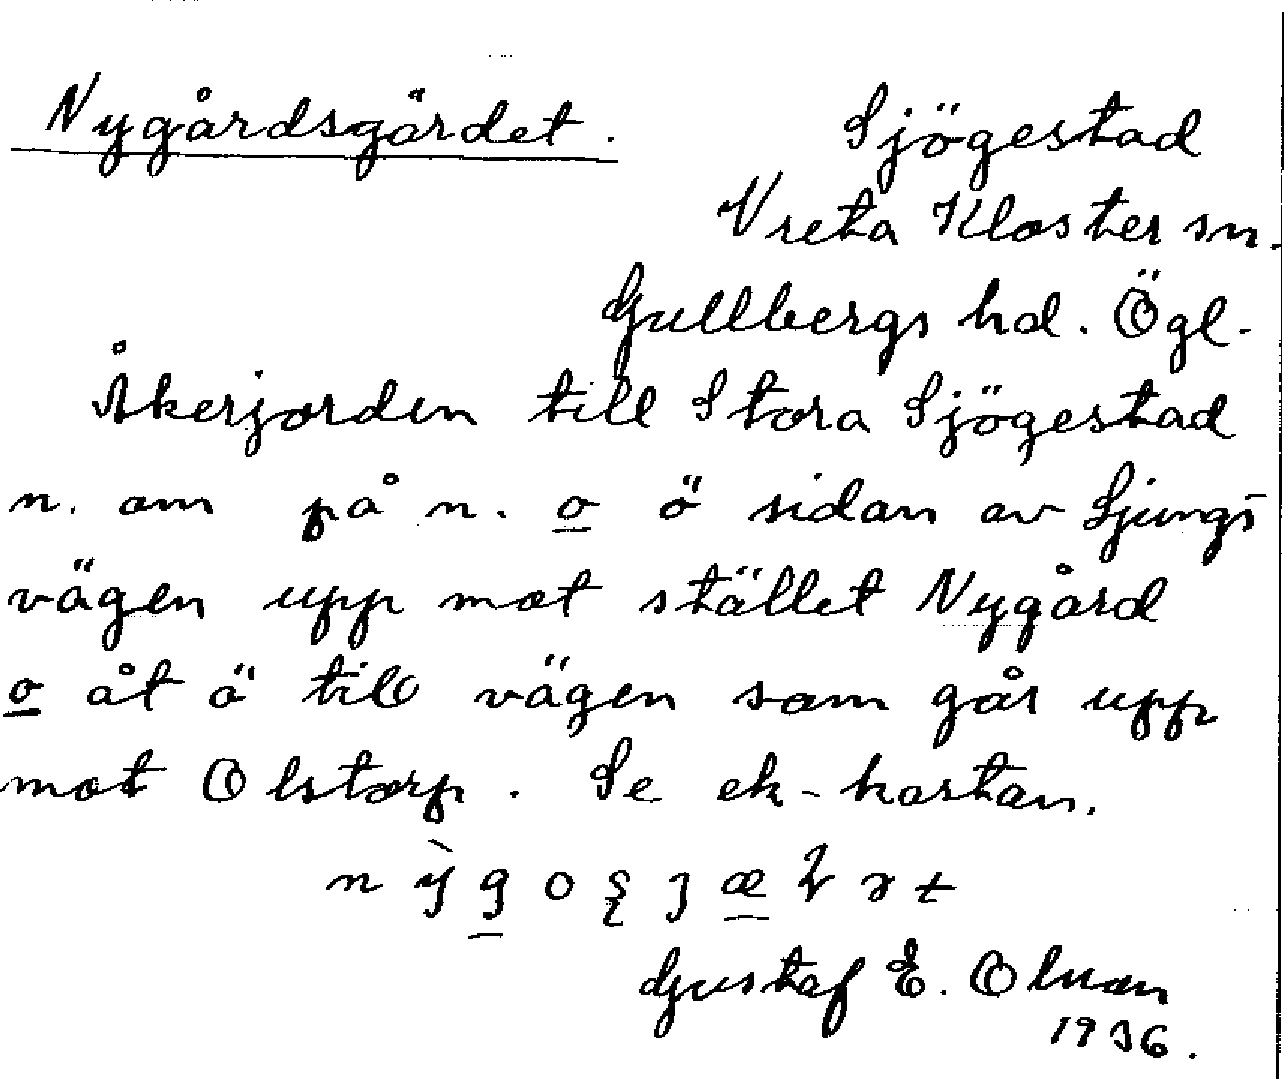 Nygårdsgärdet.
Sjögestad
Vreta Kloster sn.
Gullbergs hd. Ögl.
Åkerjorden till Stora Sjögestad
n. om på n. o ö sidan av Ljungs-
vägen upp mot stället Nygård
o åt ö till vägen som går upp
mot Olstorp. Se ek-kartan.
Gustaf E. Olson
1936.